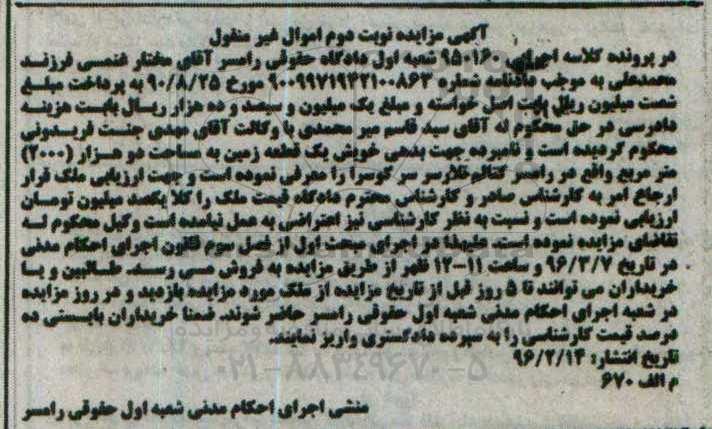 آگهی مزایده نوبت دوم اموال غیر منقول
در پرونده کلاسه اجرایی ۹۵۰۱۶۰ شعبه اول دادگاه حقوقی رامسر آقای مختار غنمسی فرزند
محمدعلی به موجب دادنامه شماره ۹۰۰۹۹۷۱۹۴۲۱۰۰۸۶۳ مورخ ۹۰/۸/۲۵ به پرداخت مبلغ
شصت میلیون ریال بابت اصل خواسته و مبلغ یک میلیون و سیصد و ده هزار ریال بابت هزینه
دادرسی در حق محکوم له آقای سید قاسم میر محمدی با وکالت آقای مهدی جنت فریدونی
محکوم گردیده است و نامبرده جهت بدهی خویش یک قطعه زمین به مساحت دو هزار (۲۰۰۰)
متر مربع واقع در رامسر کتالم تلارسر سر کوسرا را معرفی نموده است و جهت ارزیابی ملک قرار
ارجاع امر به کارشناس صادر و کارشناس محترم دادگاه قیمت ملک را کلا یکصد میلیون تومان
ارزیابی نموده است و نسبت به نظر کارشناسی نیز اعتراضی به عمل نیامده است وکیل محکوم له
تقاضای مزایده نموده است. علیهذا در اجرای مبحث اول از فصل سوم قانون اجرای احکام مدنی
در تاریخ ۹۶/۳/۷ و ساعت ۱۱-۱۲ ظهر از طریق مزایده به فروش می رسد. طالبین و یا
خریداران می توانند تا ۵ روز قبل از تاریخ مزایده از ملک مورد مزایده بازدید و در روز مزایده
در شعبه اجرای احکام مدنی شعبه اول حقوقی رامسر حاضر شوند. ضمنا خریداران بایستی ده
درصد قیمت کارشناسی را به سپرده دادگستری واریز نمایند.
تاریخ انتشار: ۹۶/۲/۱۴
۰۲۱-۸۸۳۴۹۶۷۰-۵
م الف ۶۷۰
منشی اجرای احکام مدنی شعبه اول حقوقی رامسر